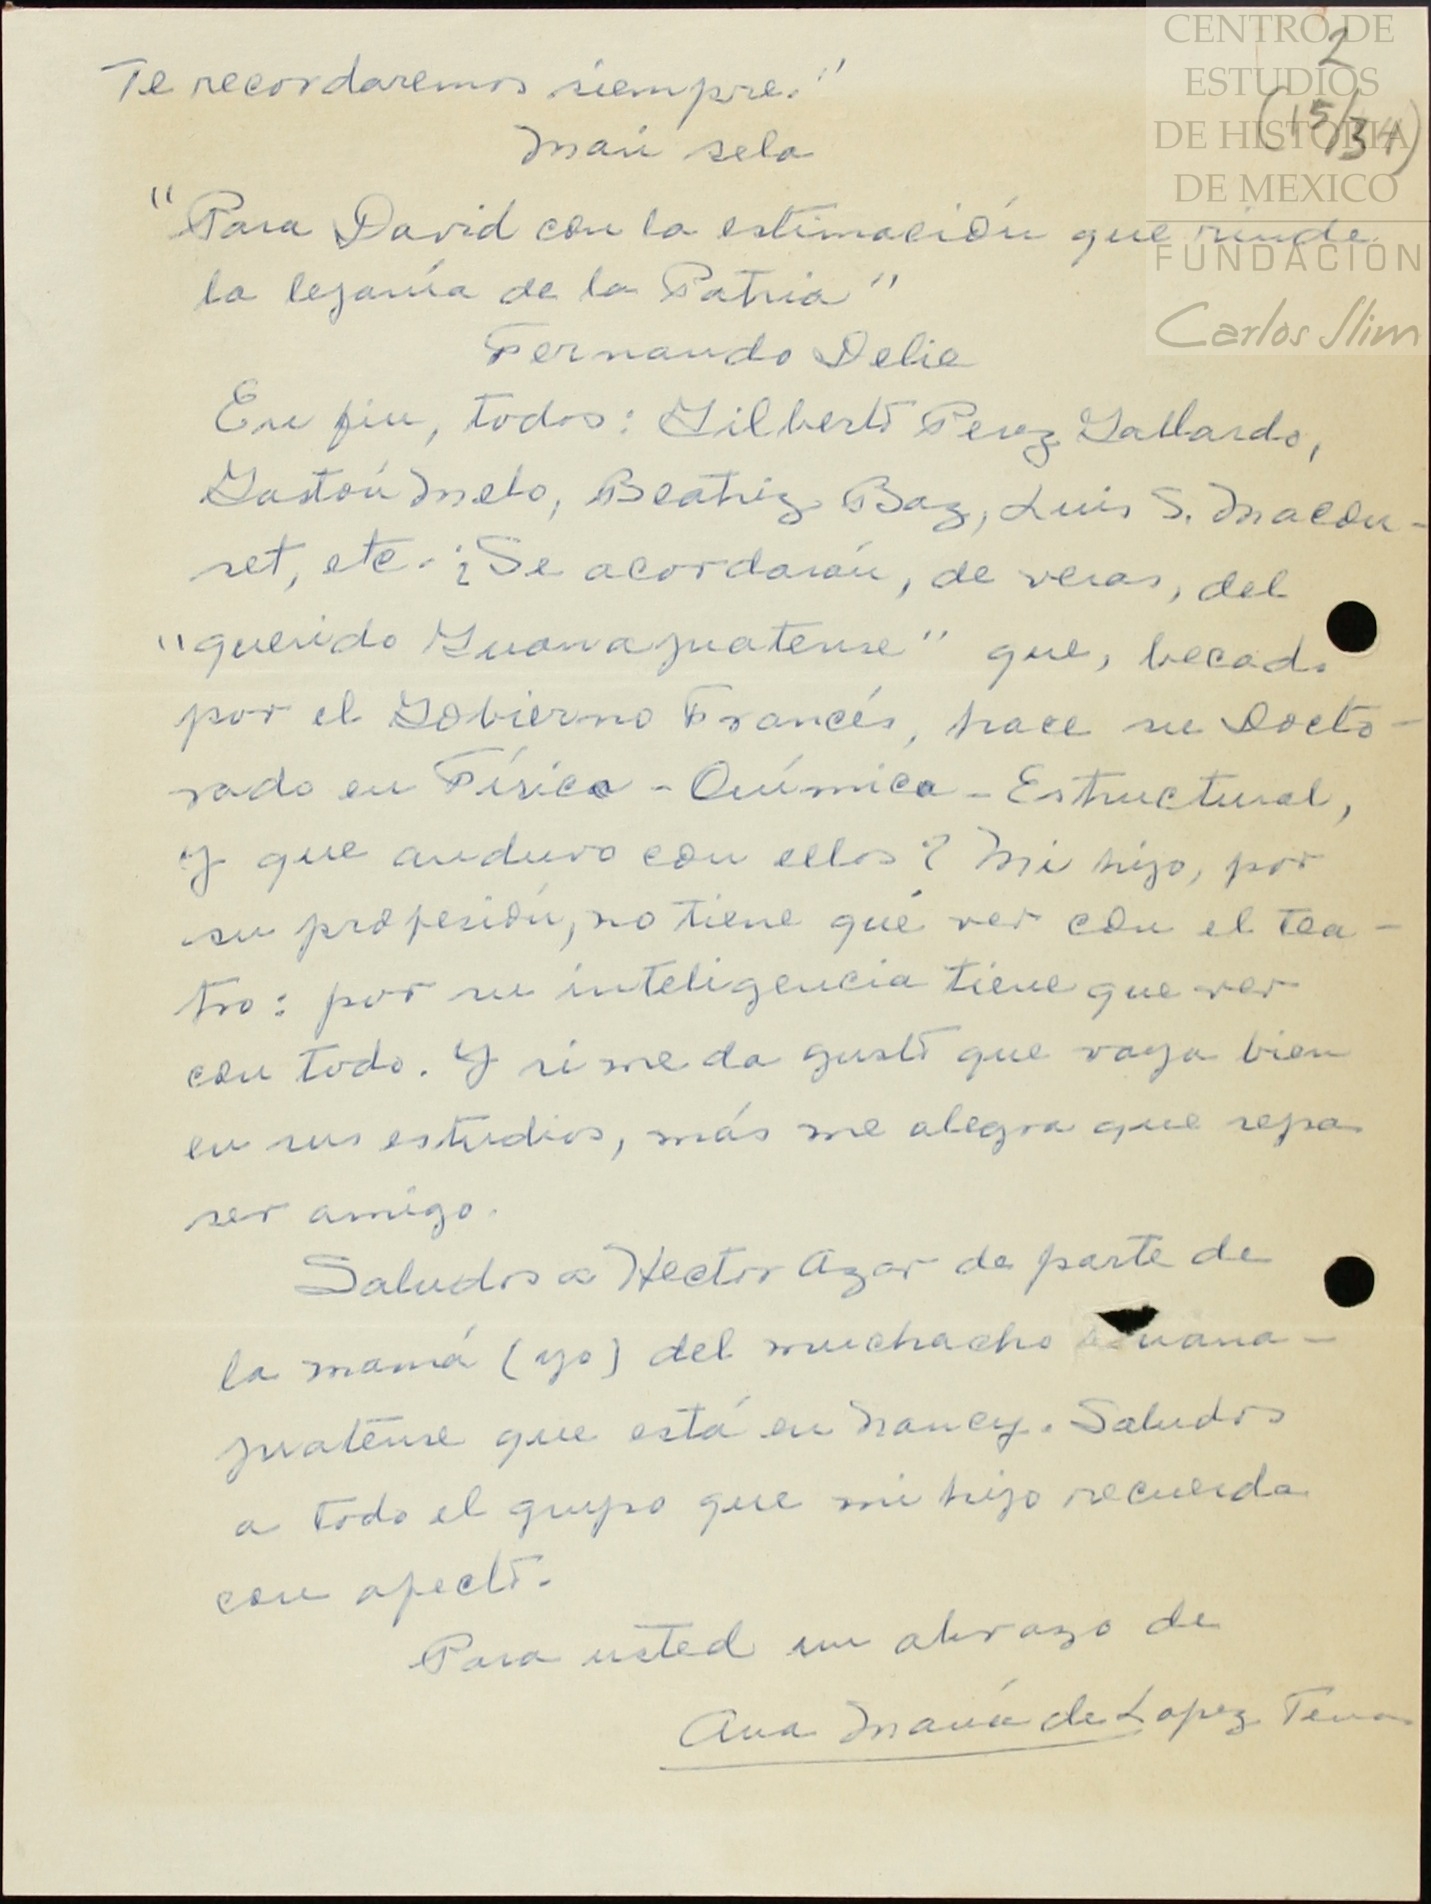 CENTRO DE
ESTUDIOS
DE HISTORIA
DE MEXICO
FUNDACIÓN
Carlos Slim
2
(15/34)
Te recordaremos siempre."
Marí sela
"Para David con la estimación que rinde
la lejanía de la Patria"
Fernando Delie
En fin, todos: Gilberto Perez Gallardo,
Gastón Melo, Beatriz Baz, Luis S. Macou-
set, etc. ¿Se acordarán, de veras, del
"querido Guanajuatense" que, becado
por el Gobierno Francés, hace su Docto-
rado en Física-Química-Estructural,
y que anduvo con ellos? Mi hijo, por
su profesión, no tiene qué ver con el tea-
tro: por su inteligencia tiene que ver
con todo. Y si me da gusto que vaya bien
en sus estudios, más me alegra que sepa
ser amigo.
Saludos a Hector Azar de parte de
la mamá (yo) del muchacho Guana-
juatense que está en Nancy. Saludos
a todo el grupo que mi hijo recuerda
con afecto.
Para usted un abrazo de
Ana María de Lopez Tena